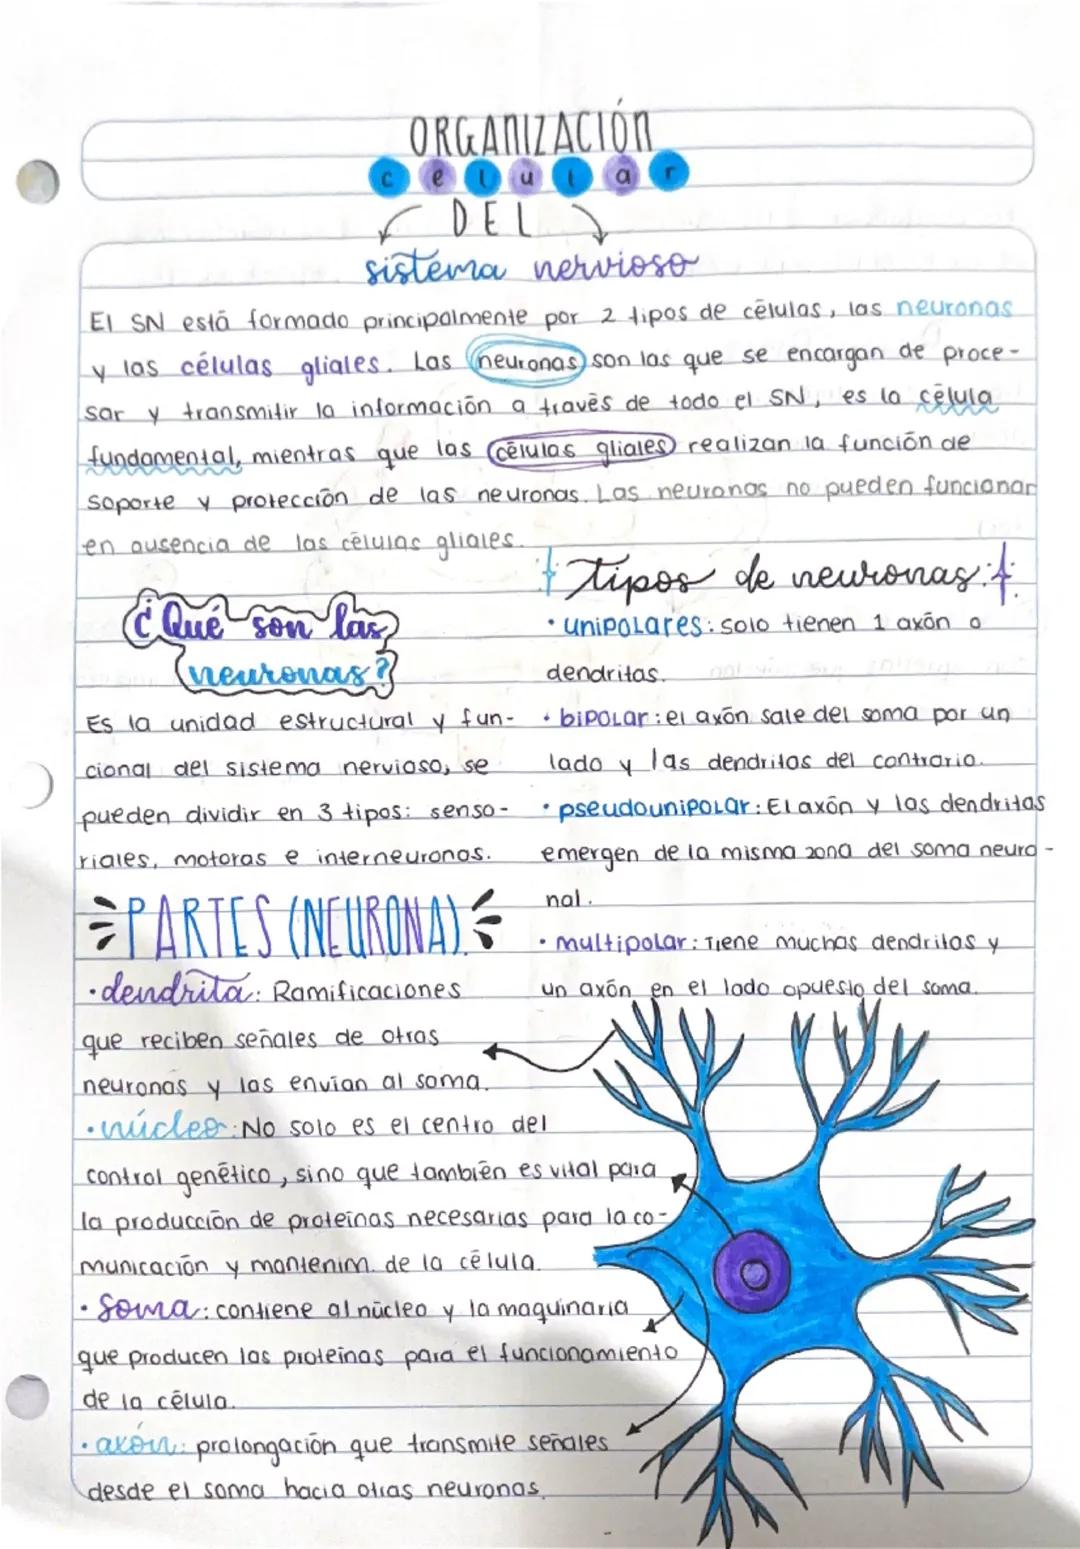 ORGANIZACIÓN
celular
DEL
sistema nervioso
El SN está formado principalmente por 2 tipos de células, las neuronas
y las células gliales. Las neuronas son las que se encargan de proce-
sar y transmitir la información a través de todo el SN, es la célula
fundamental, mientras que las células gliales realizan la función de
soporte y protección de las neuronas. Las neuronas no pueden funcionar
en ausencia de las células gliales.
¿Qué son las
neuronas?
Es la unidad estructural y fun-
cional del sistema nervioso, se
pueden dividir en 3 tipos: senso-
riales, motoras e interneuronas.
PARTES (NEURONA).
·dendrita: Ramificaciones
que reciben señales de otras
neuronas y las envían al soma.
·núcleo: No solo es el centro del
control genético, sino que también es vital para
la producción de proteínas necesarias para la co-
municación y mantenim. de la célula.
·Soma: contiene al núcleo y la maquinaria
que producen las proteínas para el funcionamiento
de la célula.
·axón: prolongación que transmite señales
desde el soma hacia otras neuronas.
tipos de neuronas:
·unipolares: solo tienen 1 axón o
dendritas.
·bipolar: el axón sale del soma por un
lado y las dendritas del contrario.
·pseudounipolar: El axón y las dendritas
emergen de la misma zona del soma neuro-
nal.
·multipolar: Tiene muchas dendritas y
un axón en el lado opuesto del soma.